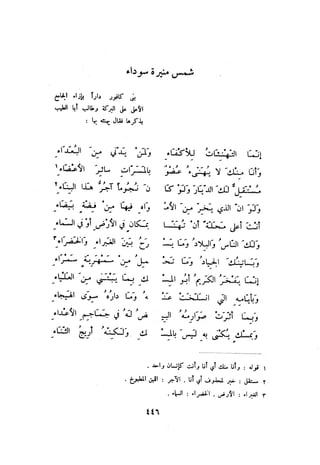 شمس منيرة سوداء
بنى كافور داراً بإزاء الجامع
الأعلى على البركة وطالب أبا الطيب
بذكرها فقال يهنئه بها :
إنّمَا التّهْنِئَاتُ لِلأكْفَاءِ ولمَنْ يَدَّني مِنَ البُعَداءِ
وَأنا مِنْكَ لا يُهَنّىءُ عُضْوٌ بالمَسَرّاتِ سائِرَ الأعْضاءِ ١
مُسْتَقِلٌّ ٢ لَكَ الدّيارَ وَلَوْ كا نَ نُجُوماً آجُرُّ هَذا البِنَاءِ ٢
وَلَوَ انّ الذي يَخِرُّ مِنَ الأمْ واهِ فيها مِنْ فِضّةٍ بَيْضاءِ
أنْتَ أعْلى مَحَلّةً أنْ تُهَنّى بمَكانٍ في الأرْضِ أوْ في السّماءِ
وَلَكَ النّاسُ وَالبِلادُ وَمَا يَسْ رَحُ بَينَ الغَبراءِ وَالخَضْراءِ ٣
وَبَساتينُكَ الجِيادُ وَمَا تَحْ مِلُ مِنْ سَمْهَرِيّةٍ سَمْراءِ
إنّمَا يَفْخَرُ الكَريمُ أبُو المِسْ كِ بِمَا يَبْتَني مِنَ العَلْياءِ
وَبأيّامِهِ التي انْسَلَخَتْ عَنْ هُ وَمَا دارُهُ سِوَى الهَيْجاءِ
وَبِمَا أثّرَتْ صَوارِمُهُ البي ضُ لَهُ في جَمَاجِمِ الأعْداءِ
وَبمِسْكٍ يُكْنى بِهِ لَيسَ بالمِسْ كِ ولَكِنّهُ أريجُ الثّنَاءِ
١ قوله : وأنا منك أي أنا وأنت كإنسان واحد .
٢ مستقل : خبر لمحذوف أي أنا . الآجر : اللبن المطبوخ .
٣ الغبراء : الأرض . الخضراء : السماء .
٤٤٦